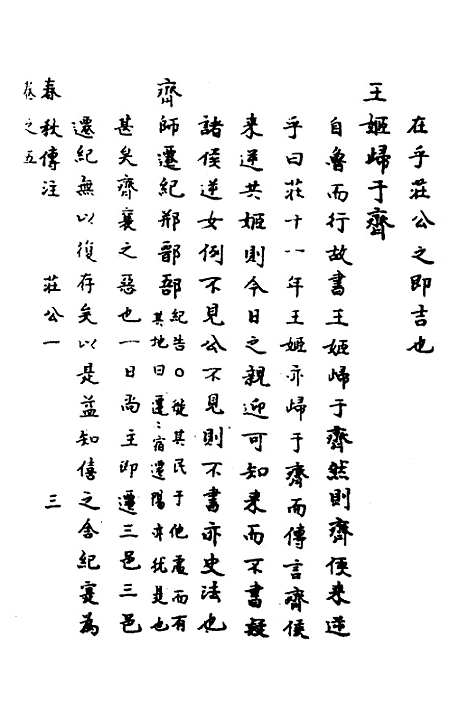 在乎莊公之即吉也
王姬歸于齊
自魯而行故書王姬歸于齊然則齊侯來逆
乎曰莊十一年王姬亦歸于齊而傳言齊侯
來逆共姬則今日之親迎可知來而不書疑
諸侯逆女例不見公不見則不書亦史法也
齊師遷紀郱鄑郚紀告○徙其民于他處而有
其地曰遷:宿遷陽亦犹是也
甚矣齊襄之惡也一日尚主即遷三邑三邑
遷紀無以復存矣以是益知僖之會紀寔為
春秋傳注 莊公一 三
卷之五